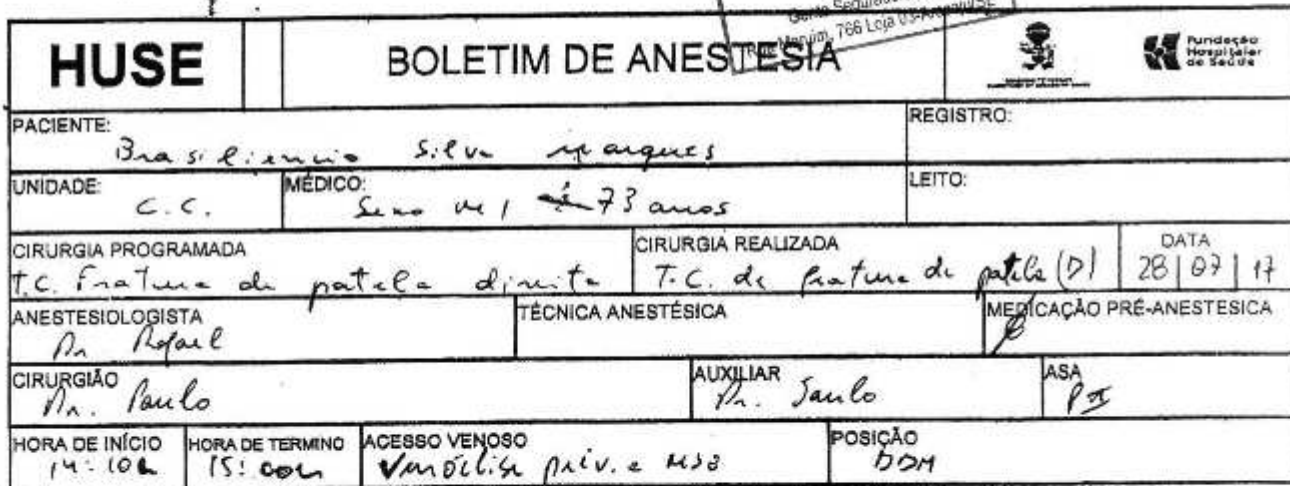 Gente Segurado
Rua Maruim, 766 Loja 03-Aracaju/SE
HUSE
BOLETIM DE ANESTESIA
Fundação
Hospitalar
de Saúde
PACIENTE:
Brasiliencio Silva Marques
REGISTRO:
UNIDADE:
C.C.
MÉDICO:
Sexo M 73 anos
LEITO:
CIRURGIA PROGRAMADA
T.C. Fratura de patela direita
CIRURGIA REALIZADA
T.C. de fratura de patela (D)
DATA
28 | 07 | 17
ANESTESIOLOGISTA
Dr Rafael
TÉCNICA ANESTÉSICA
MEDICAÇÃO PRÉ-ANESTESICA
CIRURGIÃO
Dr. Paulo
AUXILIAR
Dr. Saulo
ASA
PII
HORA DE INÍCIO
14:10h
HORA DE TERMINO
15:00h
ACESSO VENOSO
Venóclise prév. e
POSIÇÃO
DDH